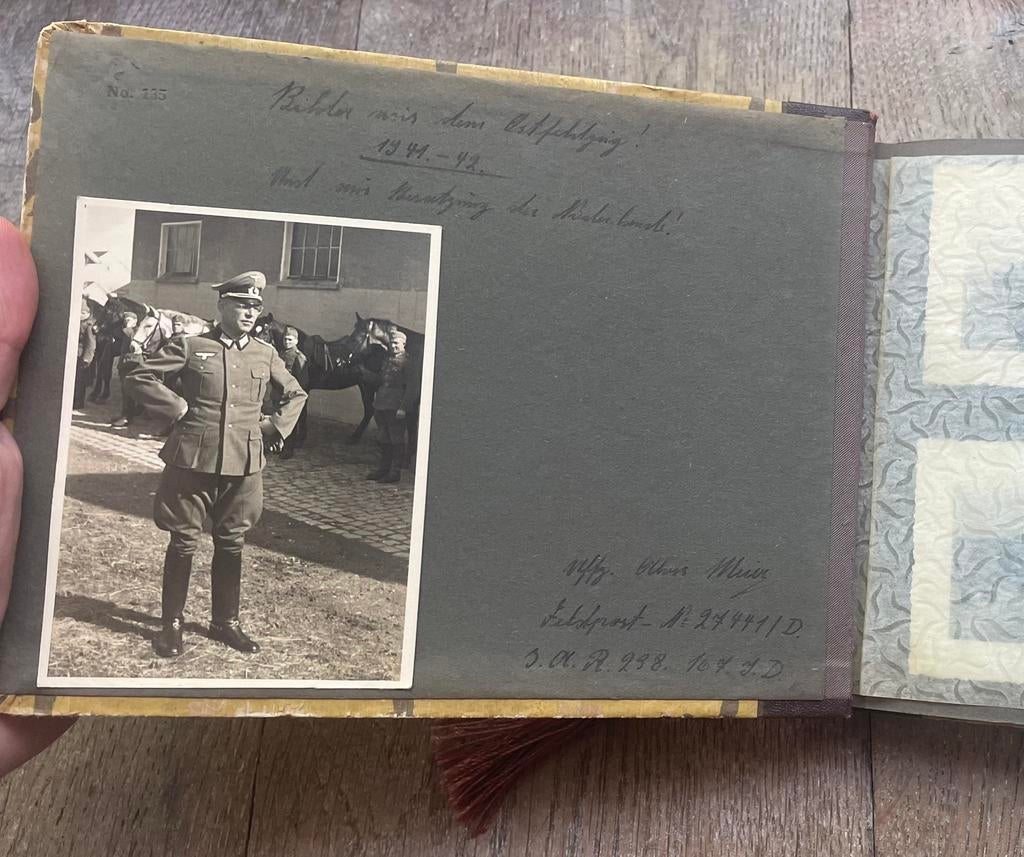 No. 135
Bilder aus dem Ostfeldzug!
1941.-42.
Und aus Besetzung der Niederlande!
Uffz. Meier
Feldpost-Nr 27441/D.
A. R. 238. 167. I. D.